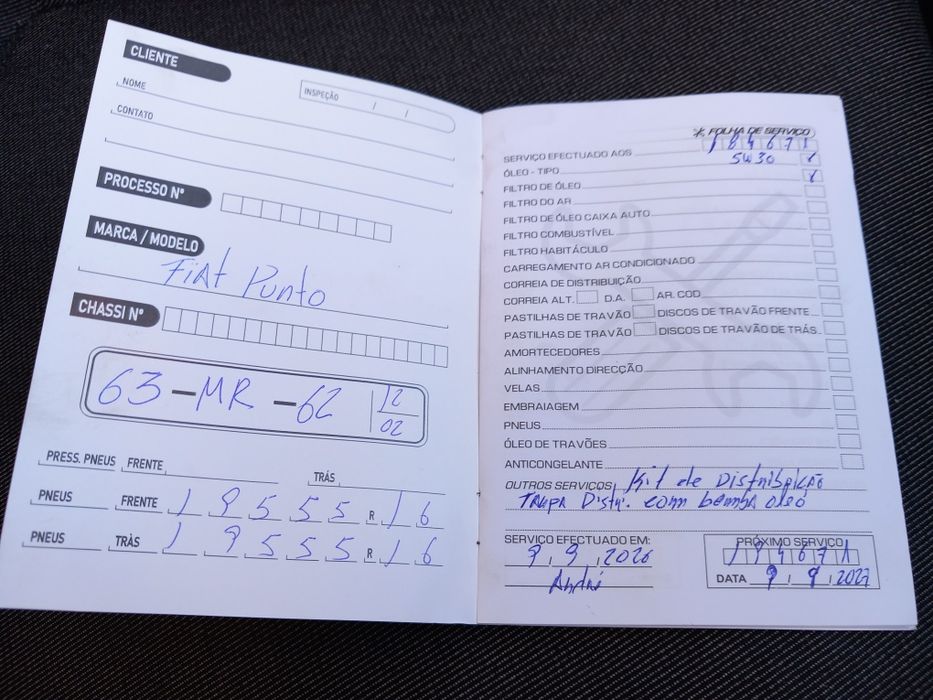 CLIENTE
INSPEÇÃO / /
NOME
CONTATO
PROCESSO Nº
MARCA / MODELO
Fiat Punto
CHASSI Nº
63-MR-62 12/02
PRESS. PNEUS FRENTE TRÁS
PNEUS FRENTE 1 9 5 5 5 R 1 6
PNEUS TRÀS 1 9 5 5 5 R 1 6
FOLHA DE SERVIÇO
SERVIÇO EFECTUADO AOS 184671
ÓLEO - TIPO 5W30
FILTRO DE ÓLEO
FILTRO DO AR
FILTRO DE ÓLEO CAIXA AUTO
FILTRO COMBUSTÍVEL
FILTRO HABITÁCULO
CARREGAMENTO AR CONDICIONADO
CORREIA DE DISTRIBUIÇÃO
CORREIA ALT. D.A. AR. COD
PASTILHAS DE TRAVÃO DISCOS DE TRAVÃO FRENTE
PASTILHAS DE TRAVÃO DISCOS DE TRAVÃO DE TRÁS
AMORTECEDORES
ALINHAMENTO DIRECÇÃO
VELAS
EMBRAIAGEM
PNEUS
ÓLEO DE TRAVÕES
ANTICONGELANTE
OUTROS SERVIÇOS Kit de
Distri. com bomba
SERVIÇO EFECTUADO EM:
9, 9, 2026
André
PRÓXIMO SERVIÇO
194671
DATA 9, 9, 2027